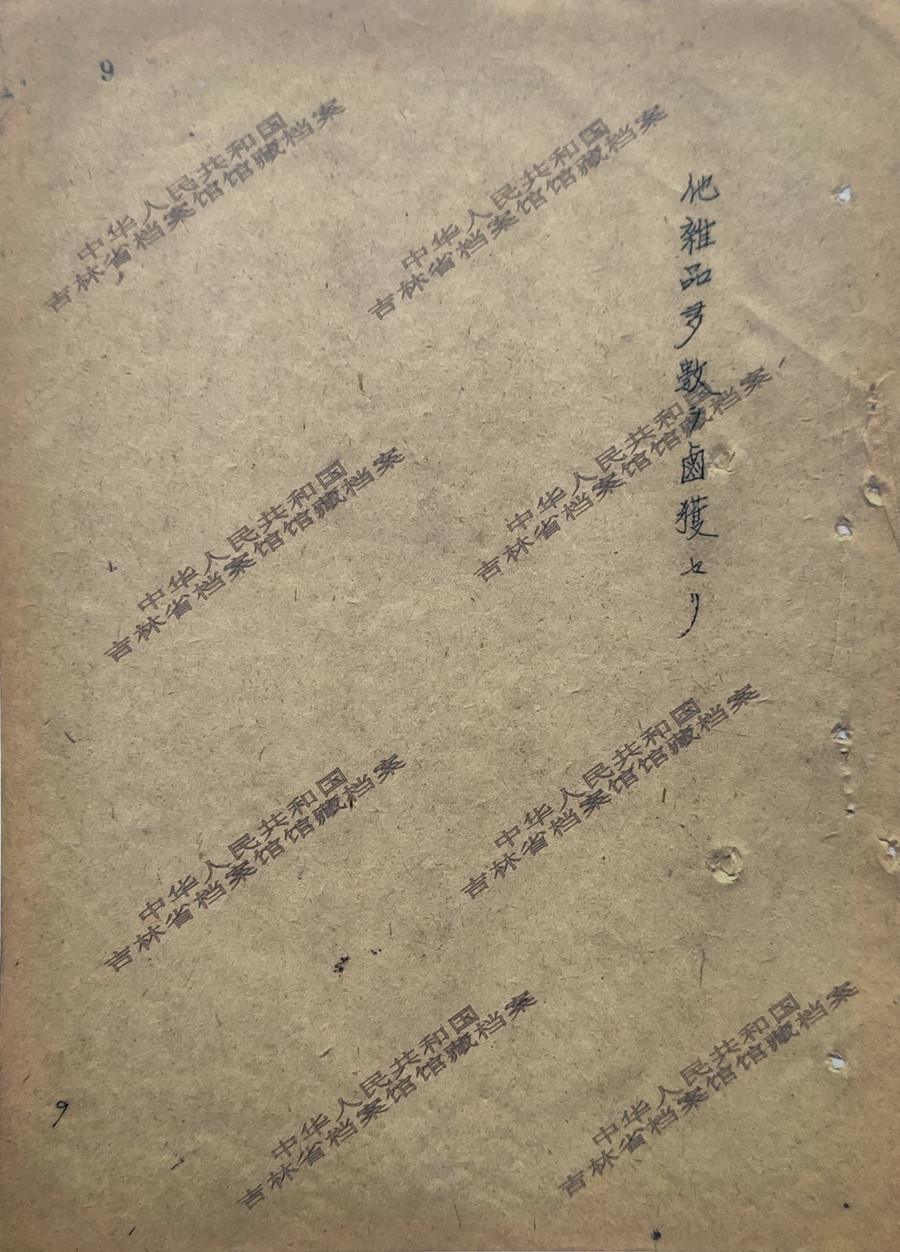 9
他雜品多数ヲ鹵獲セリ
中华人民共和国
吉林省档案馆馆藏档案
中华人民共和国
吉林省档案馆馆藏档案
中华人民共和国
吉林省档案馆馆藏档案
中华人民共和国
吉林省档案馆馆藏档案
中华人民共和国
吉林省档案馆馆藏档案
中华人民共和国
吉林省档案馆馆藏档案
中华人民共和国
吉林省档案馆馆藏档案
中华人民共和国
吉林省档案馆馆藏档案
9